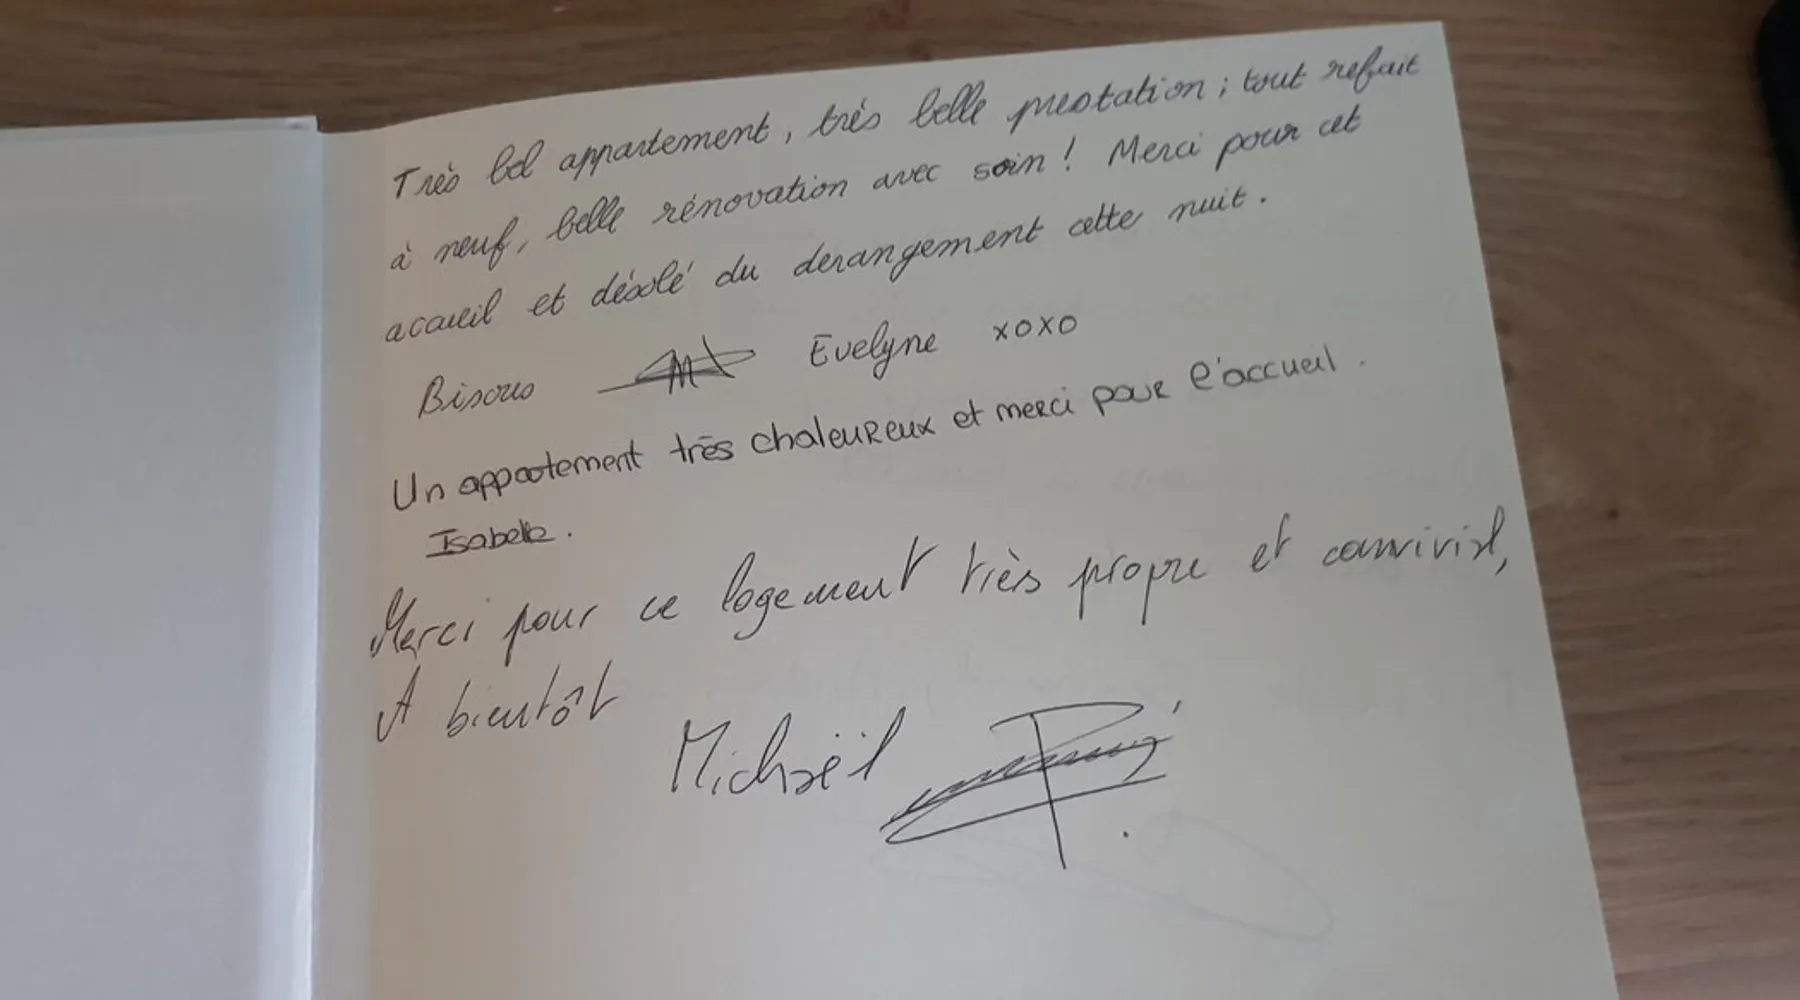 Très bel appartement, très belle prestation ; tout refait
à neuf, belle rénovation avec soin ! Merci pour cet
accueil et désolé du derangement cette nuit.
Bisous Evelyne xoxo
Un appartement très chaleureux et merci pour l'accueil.
Isabelle.
Merci pour ce logement très propre et convivial,
A bientôt
Michaël